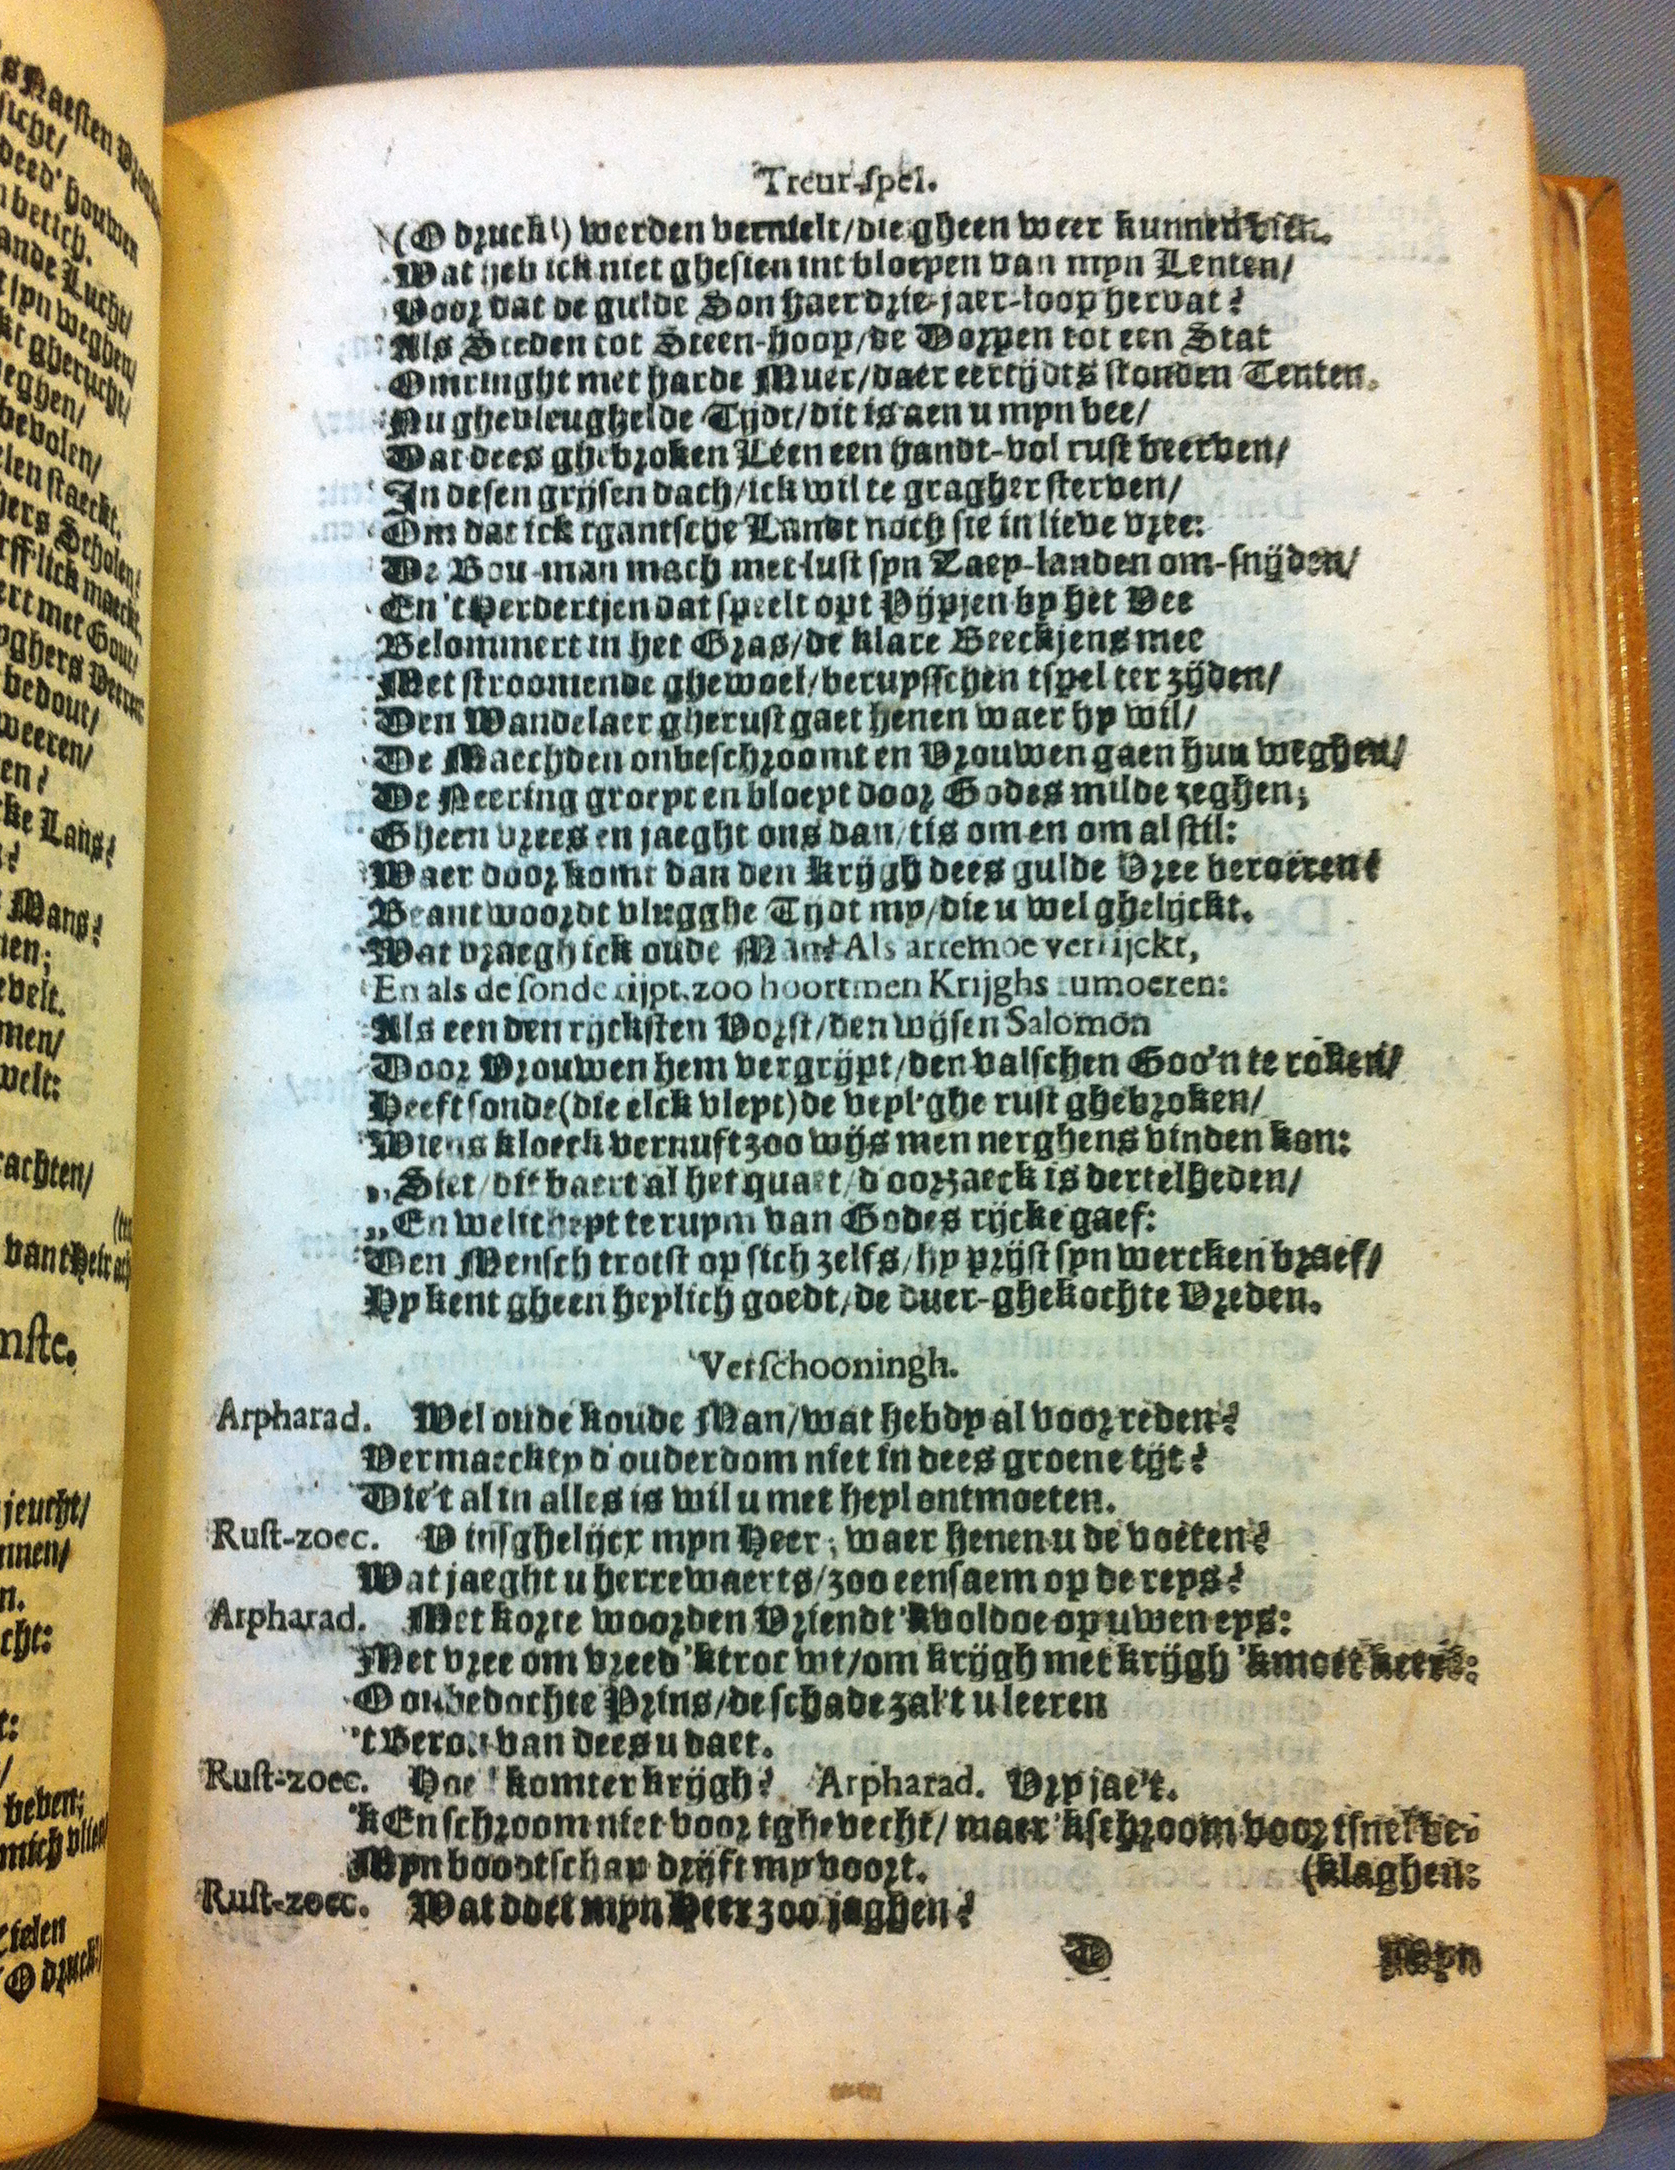 Treur-spel.
(O druck!) werden vernielt/die gheen weer kunnen
Wat heb ick niet ghesien int bloeyen van myn Lenten/
Voor dat de gulde Son haer drie-jaer-loop hervat?
Als Steden tot Steen-hoop/de Dorpen tot een Stat
Omringht met harde Muer/daer eertijdts stonden Tenten.
Nu ghevleughelde Tijdt/dit is aen u myn bee/
Dat dees ghebroken Leen een handt-vol rust beerven/
In desen grijsen dach/ick wil te gragher sterven/
Om dat ick tgantsche Landt noch sie in lieve vree:
De Bou-man mach met lust syn Zaey-landen om-snijden/
En 't Herdertjen dat speelt opt Pijpjen by het Vee
Belommert in het Gras/de klare Beeckjens mee
Met stroomende ghewoel/beruysschen tspel ter zijden/
Den Wandelaer gherust gaet henen waer hy wil/
De Maechden onbeschroomt en Vrouwen gaen hun weghen/
De Neering groeyt en bloeyt door Godes milde zeghen;
Gheen vrees en jaeght ons dan/tis om en om al stil:
Waer door komt dan den krijgh dees gulde Vree beroeren?
Beantwoordt vlugghe Tijdt my/die u wel ghelijckt.
Wat vraegh ick oude Man? Als arremoe verrijckt,
En als de sonde rijpt, zoo hoortmen Krijghs rumoeren:
Als een den rijcksten Vorst/den wijsen Salomon
Door Vrouwen hem vergrijpt/den valschen Goo'n te roken/
Heeft sonde(die elck vleyt)de veyl'ghe rust ghebroken/
Wiens kloeck vernuft zoo wijs men nerghens vinden kon:
„Siet/dit baert al het quaet/d'oorzaeck is dertelheden/
„En welicheyt te ruym van Godes rijcke gaef:
Den Mensch trotst op sich zelfs/hy prijst syn wercken braef/
Hy kent gheen heylich goedt/de duer-ghekochte Vreden.
Verschooningh.
Arpharad. Wel oude koude Man/wat hebdy al voor reden?
Vermaeckty d'ouderdom niet in dees groene tijt?
Die't al in alles is wil u met heyl ontmoeten.
Rust-zoec. V insghelijcx myn Heer, waer henen u de voeten?
Wat jaeght u herrewaerts/zoo eensaem op de reys?
Arpharad. Met korte woorden Vriendt 'kvoldoe op uwen eys:
Met vree om vreed' 'ktroc wt/om krijgh met krijgh 'kmoet keeren:
O onbedochte Prins/de schade zal't u leeren
't Berou van dees u daet.
Rust-zoec. Hoe! komter krijgh? Arpharad. Vry jae't.
'k En schroom niet voor tghevecht/ maer 'kschroom voor tsnel be-
Myn boodtschap drijft my voort. (klaghen:
Rust-zoec. Wat doet myn Heer zoo jaghen?
D Myn